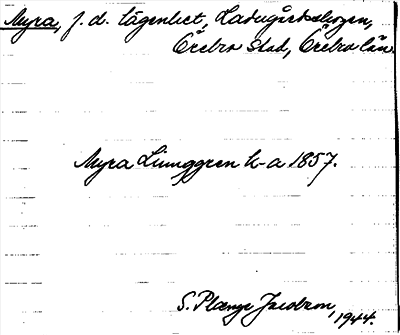 Myra, f. d. lägenhet, Ladugårdsskogen,
Örebro Stad, Örebro län.
Myra Ljunggren k-a 1857.
S. Plænge Jacobson,
1944.